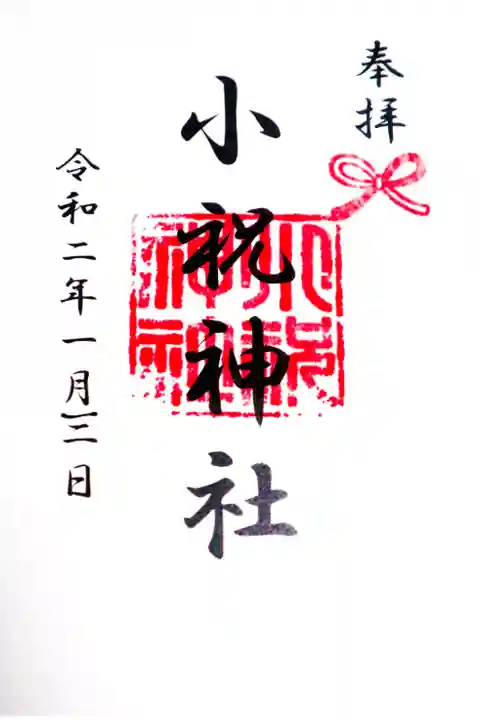 奉拝
小祝神社
小祝
神社
令和二年一月十二日